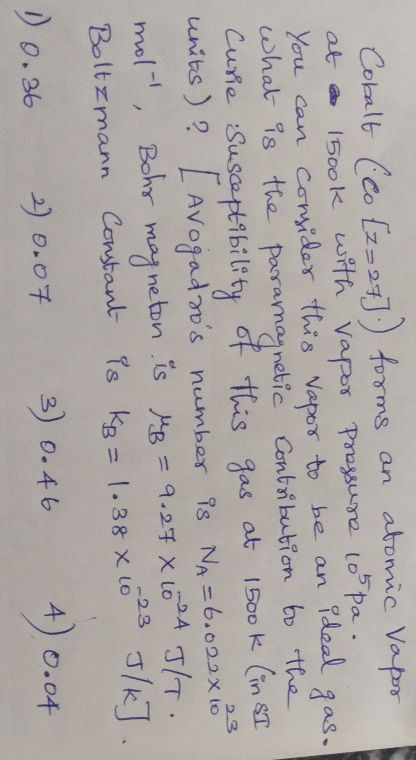 Cobalt (Co [z=27]) forms an atomic vapor
at 1500k with vapor pressure 10⁵ pa.
You can consider this vapor to be an ideal gas.
What is the paramagnetic contribution to the
Curie susceptibility of this gas at 1500 K (in SI
units)? [Avogadro's number is N_A = 6.022 × 10²³
mol⁻¹, Bohr magneton is μ_B = 9.27 × 10⁻²⁴ J/T.
Boltzmann Constant is k_B = 1.38 × 10⁻²³ J/K].
1) 0.36 2) 0.07 3) 0.46 4) 0.04